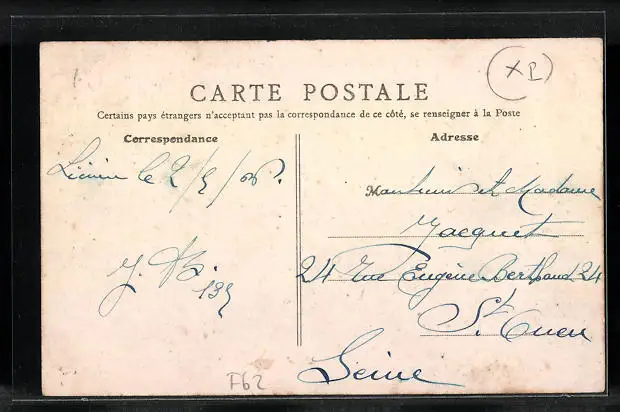 CARTE POSTALE
Certains pays étrangers n'acceptant pas la correspondance de ce côté, se renseigner à la Poste
Correspondance
Adresse
Liévin le 2/5/06.
Monsieur et Madame
Jacquet
24 Rue Eugène Berthaud 24
St. Ouen
Seine
J. B.
F62